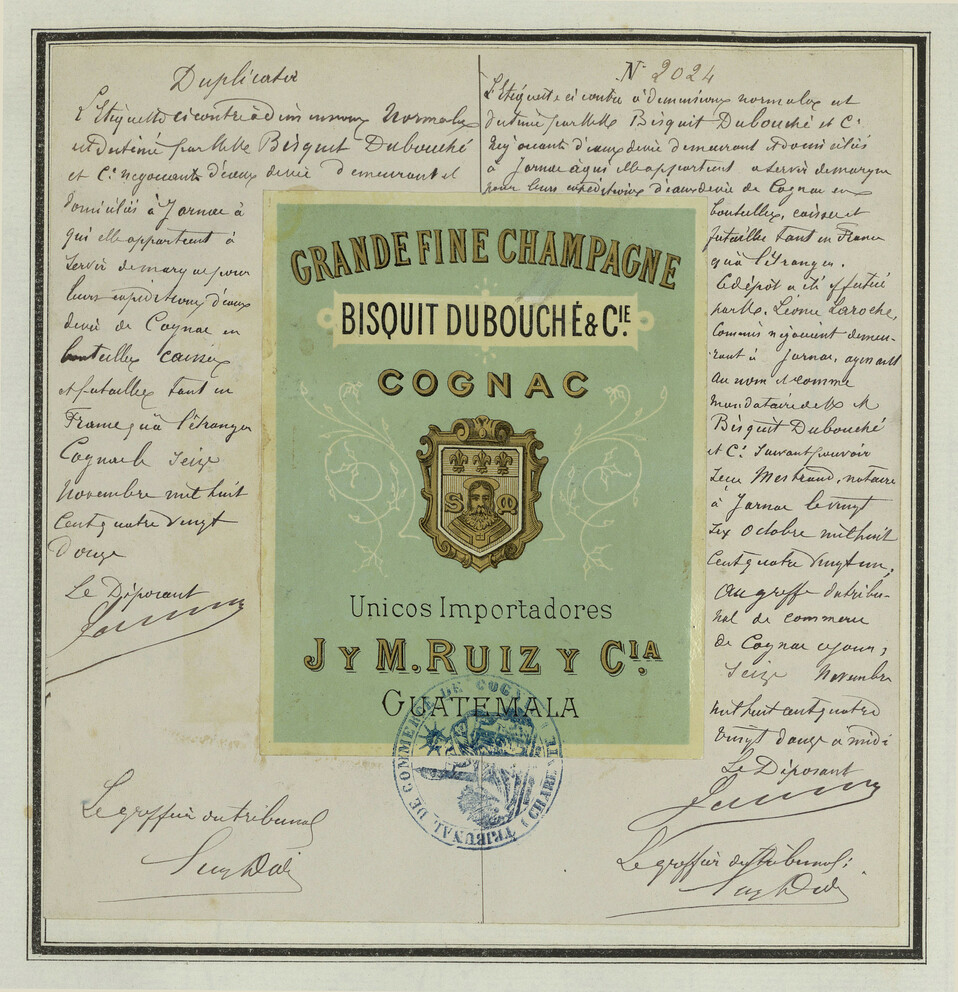 Duplicata
L'Etiquette ci contre à dimensions Normales
et destiné par MMrs Bisquit Dubouché
et Cie négociants d'eaux devie demeurant et
domiciliés à Jarnac à
qui elle appartient à
servir de marque pour
leurs expéditions d'eaux
devie de Cognac en
bouteilles caisses
et futailles tant en
France qu'à l'étranger
Cognac le Seize
Novembre mil huit
Cent quatre vingt
Douze
Le Déposant
Le greffier du tribunal
No 2024
L'étiquette ci contre à dimensions normales est
destiné par MMrs Bisquit Dubouché et Cie
Négociants d'eaux devie demeurant et domiciliés
à Jarnac à qui elle appartient a servir de marque
pour leurs expéditions d'eaux devie de Cognac en
bouteilles, caisses et
futailles tant en France
qu'à l'étranger.
Le dépôt a été effectué
par Mr. Léonce Laroche,
Commis négociant demeu-
rant à Jarnac, agissant
au nom et comme
mandataire de MM
Bisquit Dubouché
et Cie Suivant pouvoir
notaire
à Jarnac le vingt
six Octobre mil huit
Cent quatre vingt un,
Au greffe du tribu-
nal de commerce
de Cognac ce jour,
Seize Novembre
mil huit cent quatre
vingt douze à midi
Le Déposant
Le greffier du tribunal:
GRANDE FINE CHAMPAGNE
BISQUIT DUBOUCHÉ & CIE.
COGNAC
S M
Unicos Importadores
J Y M. RUIZ Y CIA.
GUATEMALA
TRIBUNAL DE COMMERCE DE COGNAC (CHARENTE)